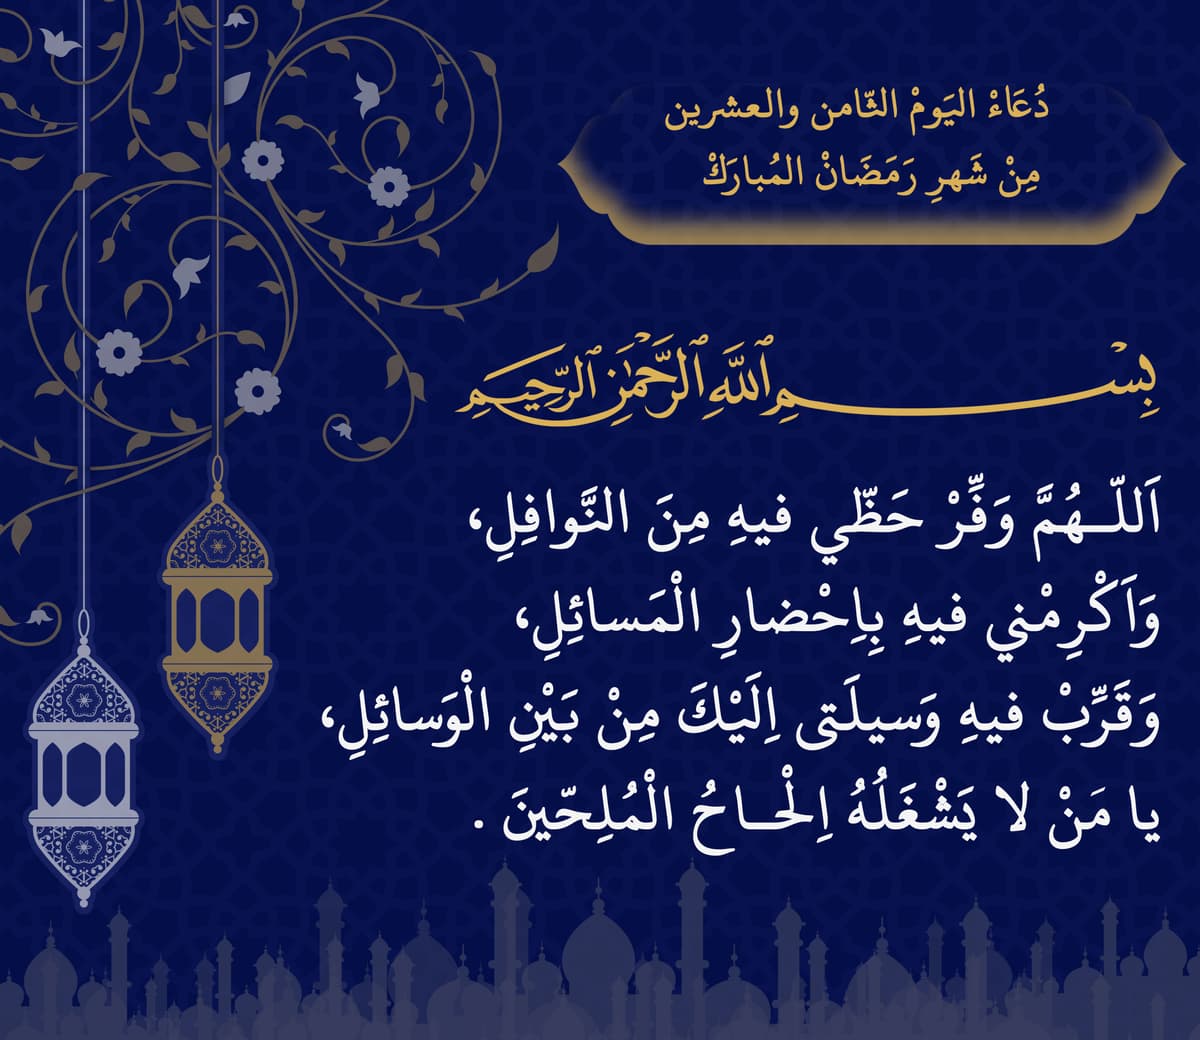 دُعَاءْ اليَومْ الثّامن والعشرين
مِنْ شَهرِ رَمَضَانْ المُبارَكْ
بِسْمِ ٱللَّهِ ٱلرَّحْمَٰنِ ٱلرَّحِيمِ
اَللّـهُمَّ وَفِّرْ حَظّي فيهِ مِنَ النَّوافِلِ،
وَاَكْرِمْني فيهِ بِاِحْضارِ الْمَسائِلِ،
وَقَرِّبْ فيهِ وَسيلَتى اِلَيْكَ مِنْ بَيْنِ الْوَسائِلِ،
يا مَنْ لا يَشْغَلُهُ اِلْحـاحُ الْمُلِحّينَ .